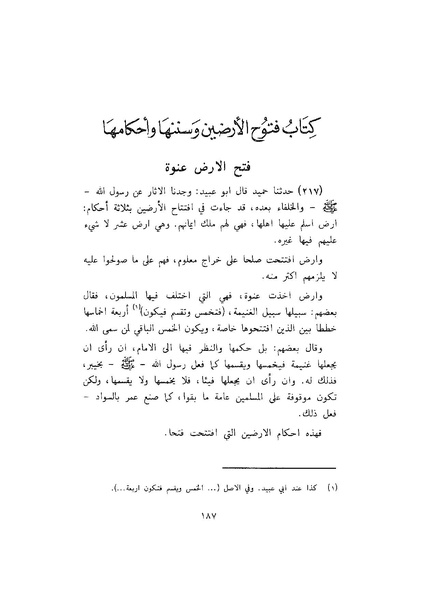 كِتَابُ فتوح الأرضين وَسننهَا وأحكامهَا
فتح الارض عنوة
(٢١٧) حدثنا حميد قال ابو عبيد: وجدنا الاثار عن رسول الله -
ﷺ - والخلفاء بعده، قد جاءت في افتتاح الأرضين بثلاثة أحكام:
ارض اسلم عليها اهلها، فهي لهم ملك ايمانهم. وهي ارض عشر لا شيء
عليهم فيها غيره.
وارض افتتحت صلحا على خراج معلوم، فهم على ما صولحوا عليه
لا يلزمهم اكثر منه.
وارض اخذت عنوة، فهي التي اختلف فيها المسلمون، فقال
بعضهم: سبيلها سبيل الغنيمة، (فتخمس وتقسم فيكون)(١) أربعة اخماسها
خططا بين الذين افتتحوها خاصة، ويكون الخمس الباقي لمن سمى الله.
وقال بعضهم: بل حكمها والنظر فيها الى الامام، ان رأى ان
يجعلها غنيمة فيخمسها ويقسمها كما فعل رسول الله - ﷺ - بخيبر،
فذلك له. وان رأى ان يجعلها فيئا، فلا يخمسها ولا يقسمها، ولكن
تكون موقوفة على المسلمين عامة ما بقوا، كما صنع عمر بالسواد -
فعل ذلك.
فهذه احكام الارضين التي افتتحت فتحا.
(١) كذا عند ابي عبيد. وفي الاصل (... الخمس ويقسم فتكون اربعة...).
١٨٧